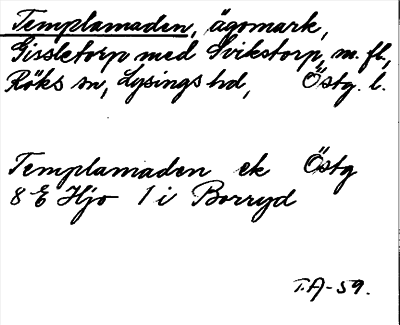 Templamaden, ägomark,
Gissletorp med Svikstorp, m. fl.,
Röks sn, Lysings hd, Östg. l.
Templamaden ek Östg
8 E Hjo 1 i Borryd
T.A-59.